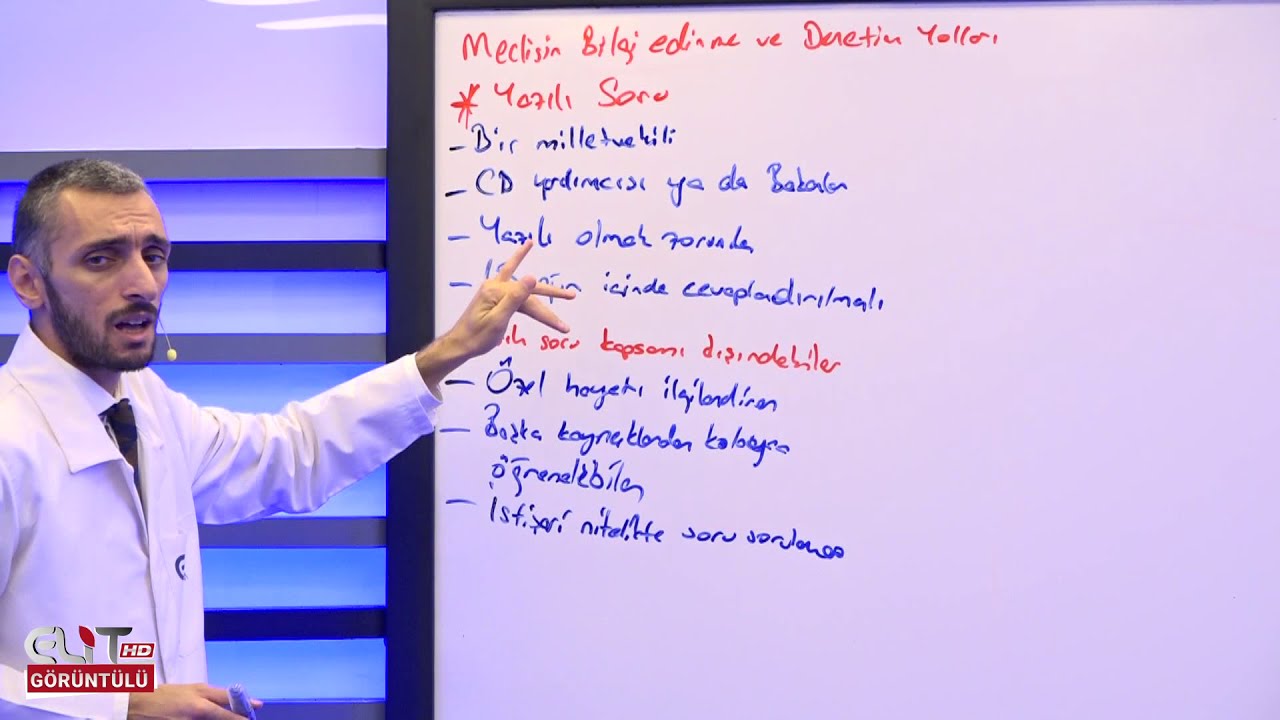 Meclisin Bilgi edinme ve Denetim Yolları
* Yazılı Soru
- Bir milletvekili
- CB yardımcısı ya da Bakanlar
- Yazılı olmak zorunda
- içinde cevaplandırılmalı
soru kapsamı dışındakiler
- Özel hayatı ilgilendiren
- Başka kaynaklardan kolayca
öğrenilebilen
- İstişari nitelikte soru sorulamaz
ELiT HD
GÖRÜNTÜLÜ